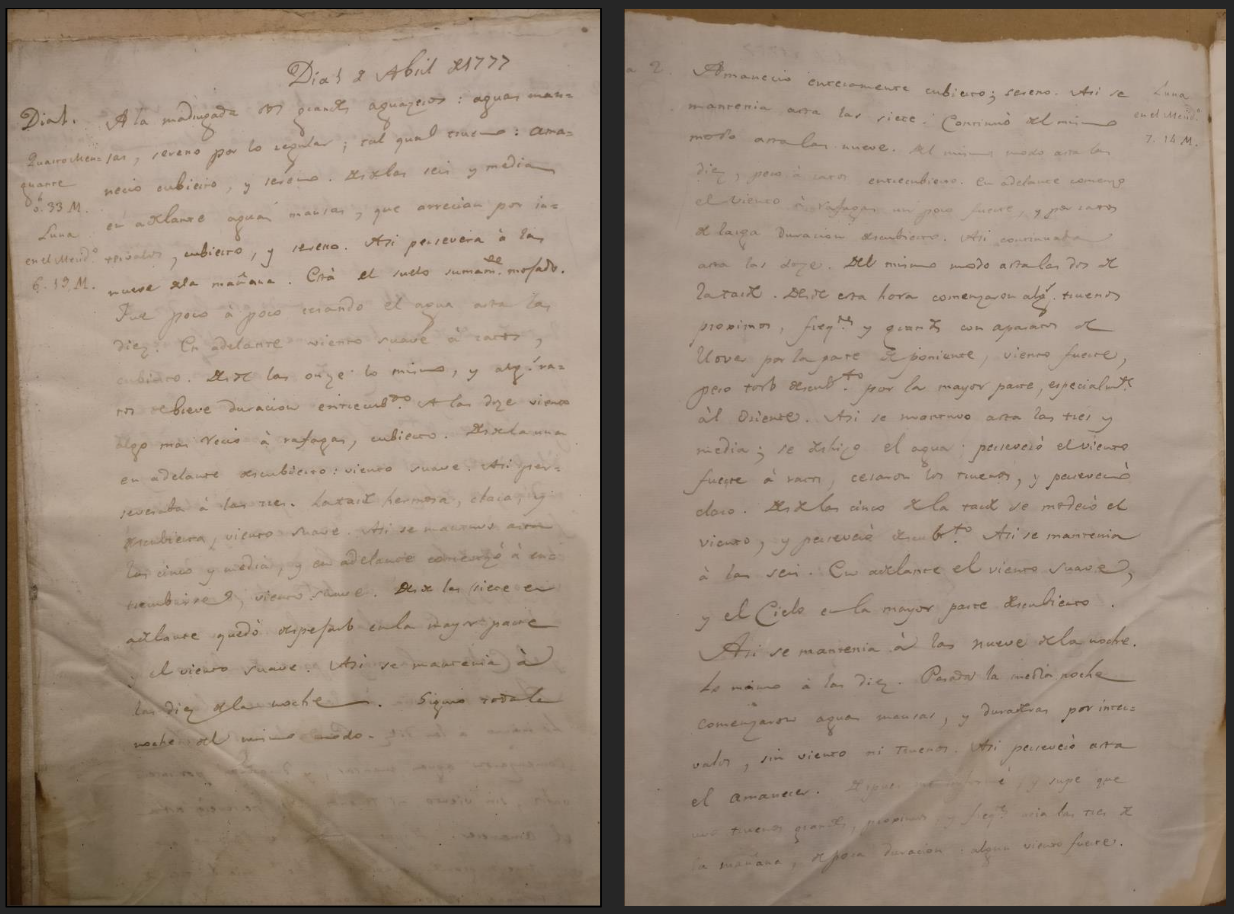 Dia 1 2 Abril de 1777
Dia 1.
Quarto Men=
guante
6. 33 M.
Luna
en el Mend.º
6. 19 M.
A la madrugada dos grandes aguaceros: aguas man=
sas, sereno por lo regular; tal qual trueno: ama=
necio cubierto, y sereno. Desde las seis y media
en adelante aguas mansas, que arrecian por in=
tervalos, cubierto, y sereno. Asi persevera à las
nueve de la mañana. Està el suelo sumam.te mojado.
Fue poco à poco cesando el agua asta las
diez. En adelante viento suave à ratos,
cubierto. Desde las onze lo mismo, y alg.s ra=
tos de breve duracion entrecub.to A las doze viento
algo mas recio à rafagas, cubierto. Desde la una
en adelante descubierto: viento suave. Asi per=
severaba à las tres. La tarde hermosa, clara, y
descubierta, viento suave. Asi se mantuvo asta
las cinco y media, y en adelante comenzó à en=
trecubrirse, viento suave. Desde las siete en
adelante quedò despejado en la mayor parte
el viento suave. Asi se mantenia à
las diez de la noche. Siguio toda la
noche del mismo modo.
a 2.
Luna
en el Mend.º
7. 14 M.
Amanecio enteramente cubierto; sereno. Asi se
mantenia asta las siete. Continuó del mismo
modo asta las nueve. Del mismo modo asta las
diez, pero à ratos entrecubierto. En adelante comenzo
el viento à rafagas un poco fuerte, y por ratos
de larga duracion descubierto. Asi continuaba
asta las doze. Del mismo modo asta las dos de
la tarde. Desde esta hora comenzaron alg.s truenos
proximos, freq.tes y grandes con aparato de
llover por la parte de poniente, viento fuerte,
pero todo descub.to por la mayor parte, especialm.te
àl Oriente. Asi se mantuvo asta las tres y
media; se deshizo el agua: perseverò el viento
fuerte à ratos, cesaron los truenos, y perseverò
claro. Desde las cinco de la tarde se moderò el
viento, y perseverò descub.to Asi se mantenia
à las seis. En adelante el viento suave,
y el Cielo en la mayor parte descubierto.
Asi se mantenia à las nueve de la noche.
Lo mismo à las diez. Pasada la media noche
comenzaron aguas mansas, y duraderas por inter=
valos, sin viento ni truenos. Asi perseverò asta
el amanecer. y supe que
truenos grandes, proximos y freq.tes acia las tres de
la mañana, de poca duracion: algun viento fuerte.